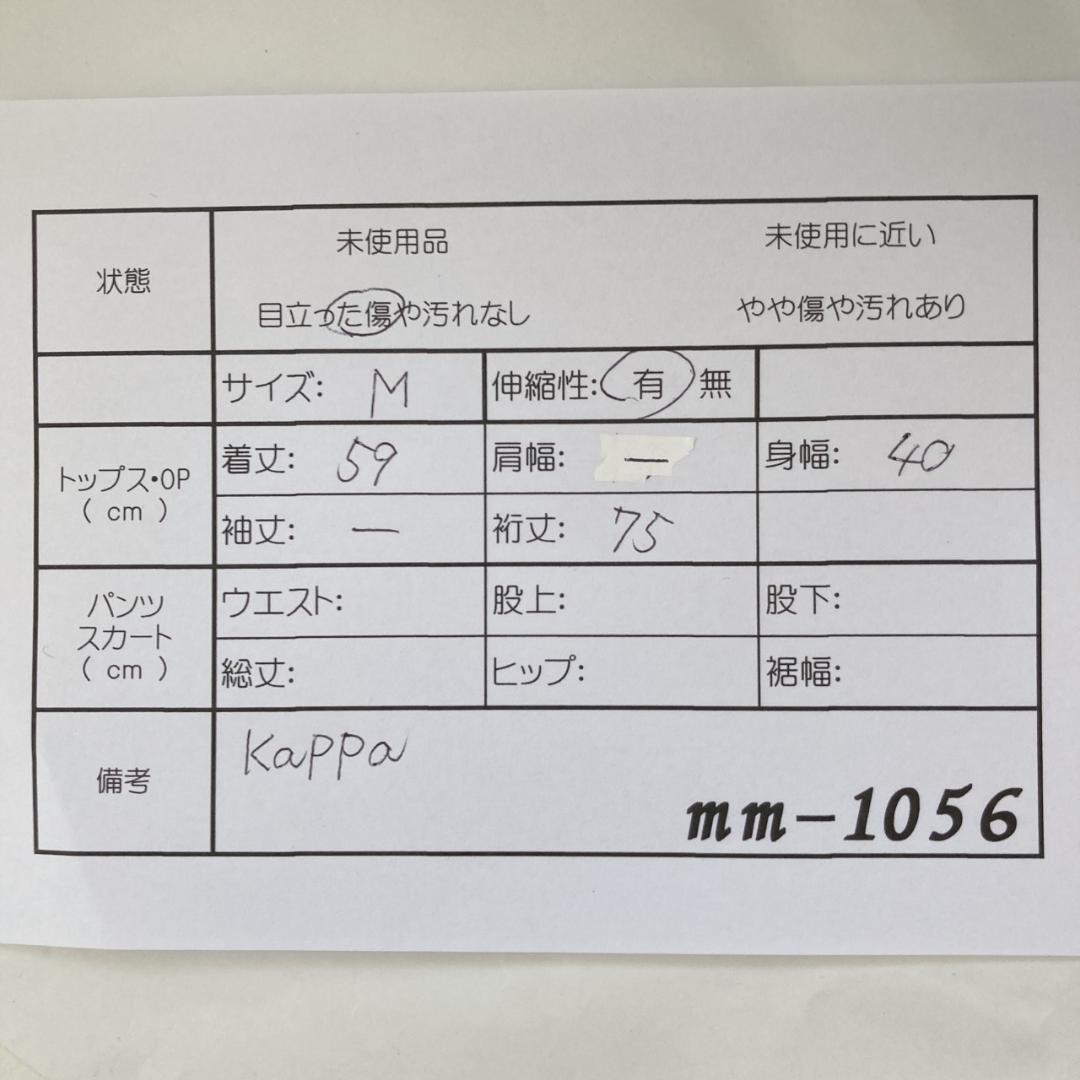 状態
未使用品 未使用に近い
目立った傷や汚れなし やや傷や汚れあり
サイズ: M 伸縮性: 有 無
トップス・OP
( cm )
着丈: 59 肩幅: — 身幅: 40
袖丈: — 裄丈: 75
パンツ
スカート
( cm )
ウエスト: 股上: 股下:
総丈: ヒップ: 裾幅:
備考
Kappa
mm-1056